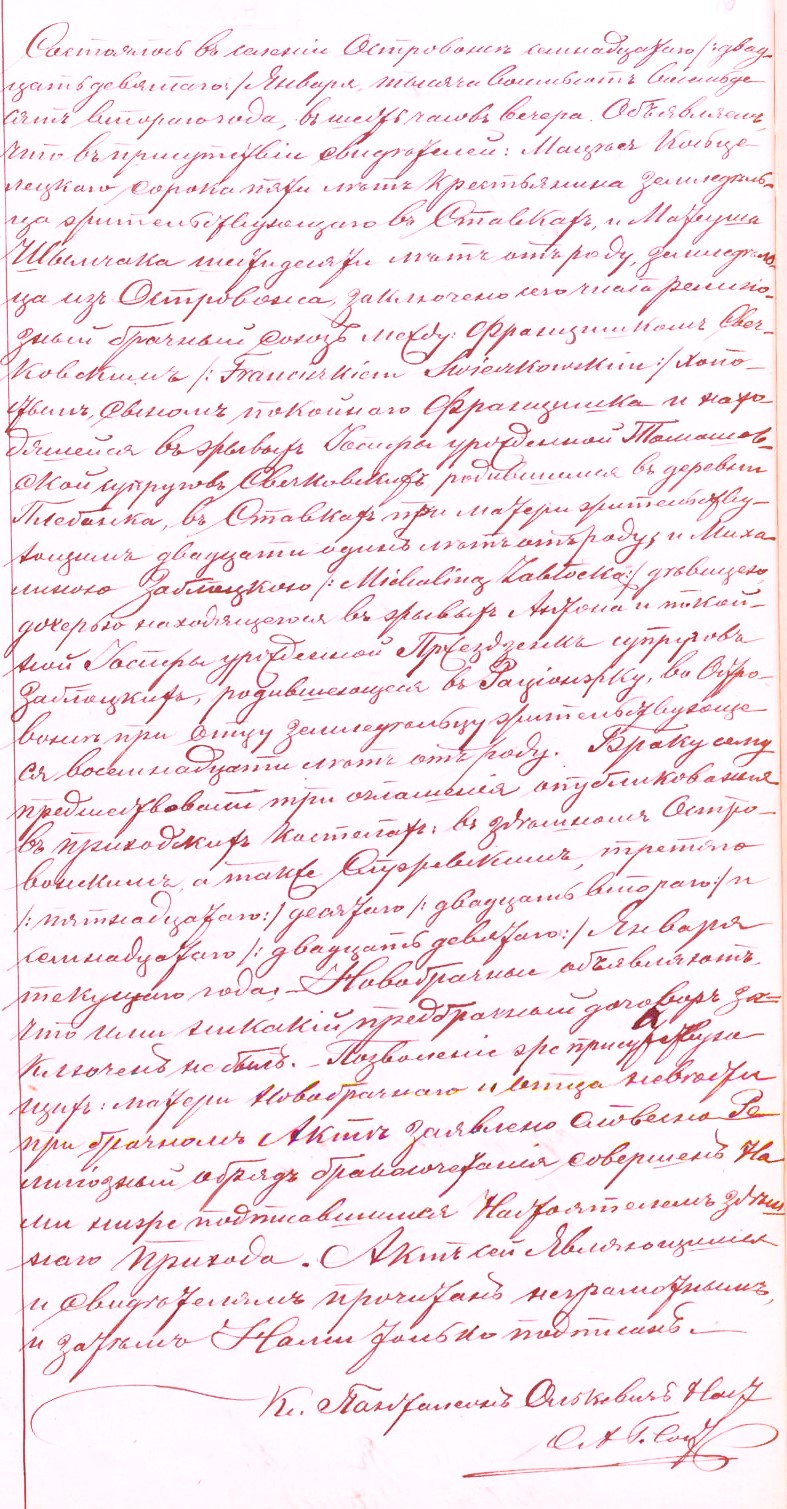 Состоялось въ селеніи Островонсъ семнадцатаго /:двад-
цать девятаго:/ Января, тысяча восемьсотъ восемьде
сятъ втораго года, въ шесть часовъ вечера. Объявляемъ,
что въ присутствіи свидѣтелей: Мацѣя
лецкаго сорока пяти лѣтъ крестьянина земледѣль-
ца жительствующаго въ Ставкахъ, и Матеуша
Шымчака шестидесяти лѣтъ отъ роду, земледѣль-
ца изъ Островонса, заключено сего числа религіо-
зный брачный союзъ между: Францишкомъ Свер-
ковскимъ /: Franciszkiem Świerkowskim:/ холо-
стымъ, сыномъ покойнаго Францишка и нахо-
дящейся въ живыхъ урожденной Томашов-
ской супруговъ Сверковскихъ родившимся въ деревни
Плебанка, въ Ставкахъ при матери жительству-
ющимъ двадцати одинъ лѣтъ отъ роду, и Миха-
линою Заблоцкою /: Michaliną Zabłocką:/ дѣвицею,
дочерью находящегося въ живыхъ Антона и покой-
ной урожденной супруговъ
Заблоцкихъ, родившеюся въ Раціонжку, во Остро-
вонсъ при отцу земледѣльцу жительствующе
ся восемнадцати лѣтъ отъ роду. Браку сему
предшествовали три оглашенія опубликованныя
въ приходскихъ костелахъ: въ здѣшномъ Остро-
вонскимъ, а также Служевскимъ, третяго
/: пятнадцатаго:/ десятаго /: двадцать втораго:/ и
семнадцатаго /: двадцать девятаго:/ Января
текущаго года. – Новобрачные объявляютъ
что ими никакій предбрачный договоръ за=
ключенъ небылъ. – Позволеніе же присутствую
щихъ: матери Новобрачнаго и отца невѣсты
при брачномъ Актѣ заявлено словесно Ре
лигіозный обрядъ бракосочетанія совершенъ На
ми ниже подписавшимся Настоятелемъ здѣш
няго Прихода. Актъ сей Являющимся
и свидѣтелямъ прочитанъ неграмотнымъ,
и затѣмъ Нами только подписанъ. –
Кс. Панталеонъ Олькевичъ Наст